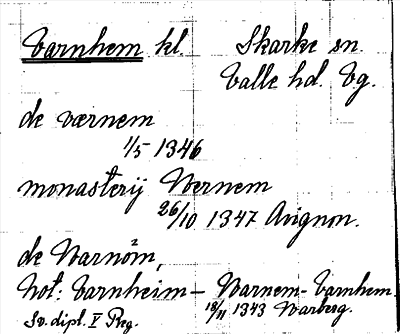 Varnhem kl. Skarke sn.
Valle hd. Vg.
de værnem
1/5 1346
monasterij Wernem
26/10 1347 Avignon.
de Warnöm,
Not: Varnheim – Warnem - Varnhem.
18/11 1343 Warberg.
Sv. dipl. V Reg.